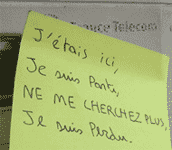 France Telecom
J'étais ici,
Je suis Partie,
NE ME CHERCHEZ PLUS,
Je suis Perdue.